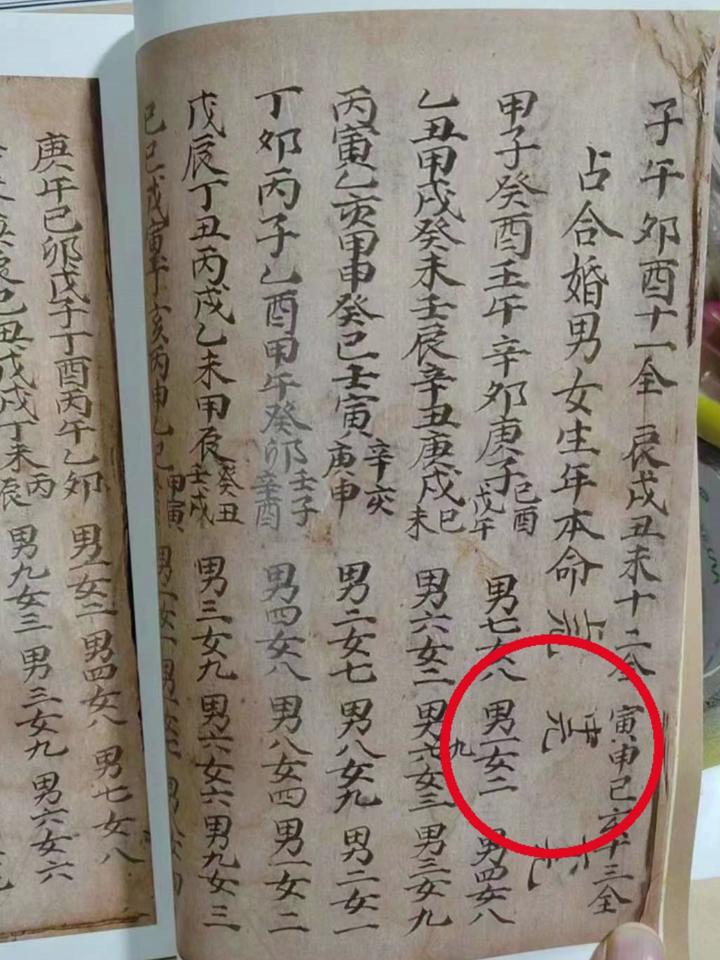 子午卯酉十一全 辰戌丑未十二全 寅申巳亥十三全
占合婚男女生年本命 上元 中元 下元
甲子癸酉壬午辛卯庚子己酉戊午 男七女八 男一女二 男四女八
乙丑甲戌癸未壬辰辛丑庚戌己未 男六女二 男六九女三 男三女九
丙寅乙亥甲申癸巳壬寅辛亥庚申 男二女七 男八女九 男二女一
丁卯丙子乙酉甲午癸卯壬子辛酉 男四女八 男八女四 男一女二
戊辰丁丑丙戌乙未甲辰癸丑壬戌 男三女九 男六女六 男九女三
己巳戊寅丁亥丙申乙巳 甲寅 男一女一
庚午己卯戊子丁酉丙午乙卯 男一女二 男四女八 男七女八
庚辰己丑戊戌丁未丙辰 男九女三 男三女九 男六女六